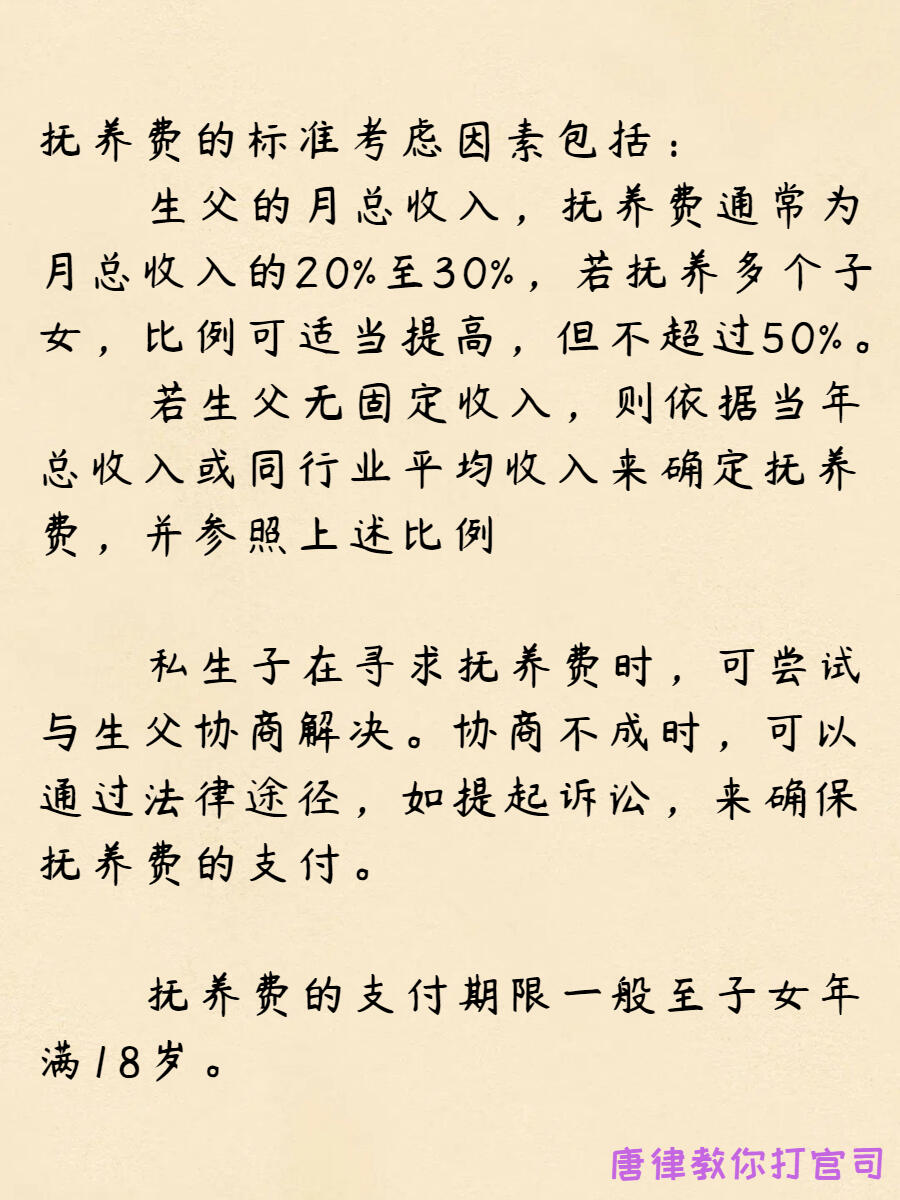 抚养费的标准考虑因素包括：
生父的月总收入，抚养费通常为
月总收入的20%至30%，若抚养多个子
女，比例可适当提高，但不超过50%。
若生父无固定收入，则依据当年
总收入或同行业平均收入来确定抚养
费，并参照上述比例
私生子在寻求抚养费时，可尝试
与生父协商解决。协商不成时，可以
通过法律途径，如提起诉讼，来确保
抚养费的支付。
抚养费的支付期限一般至子女年
满18岁。
唐律教你打官司